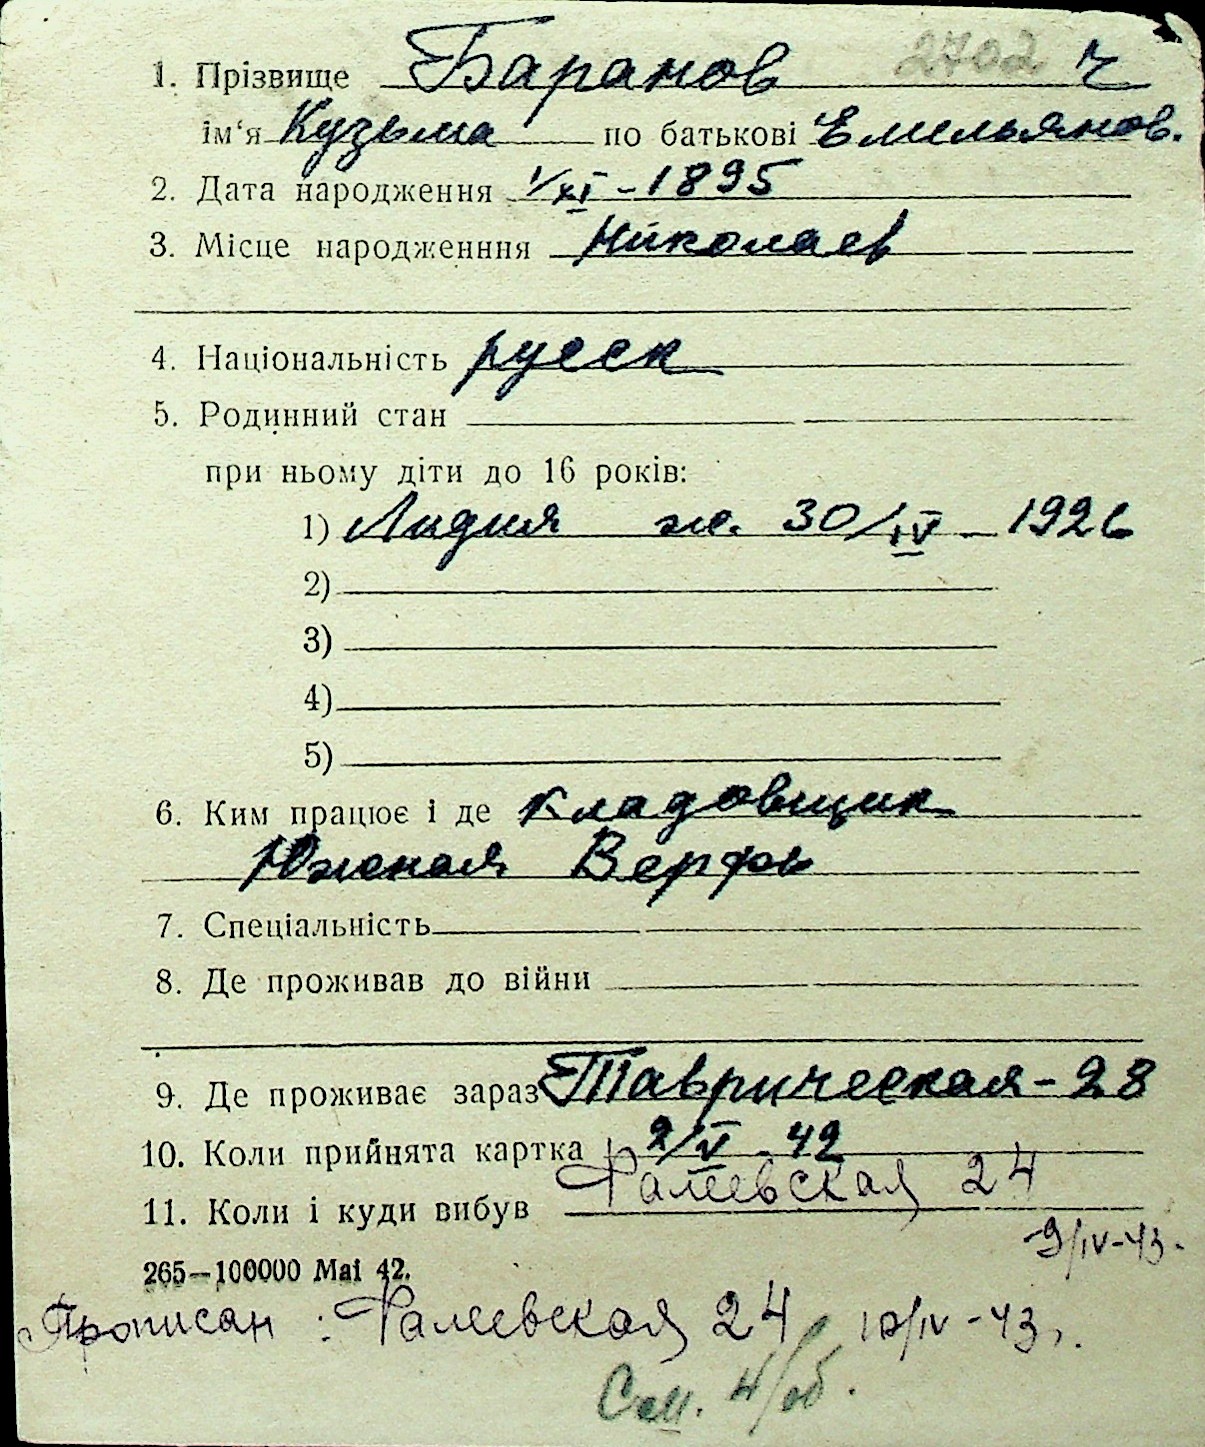 1. Прізвище Баранов 2702 ч
ім'я Кузьма по батькові Емельянов.
2. Дата народження 1/XI - 1895
3. Місце народженння Николаев
4. Національність русск
5. Родинний стан
при ньому діти до 16 років:
1) Лидия ж. 30/IV - 1926
2)
3)
4)
5)
6. Ким працює і де Кладовщик
Южная Верфь
7. Спеціальність
8. Де проживав до війни
9. Де проживає зараз Таврическая - 28
10. Коли прийнята картка 2/V - 42
11. Коли і куди вибув Фалеевская 24
9/IV-43.
265—100000 Mai 42.
Прописан: Фалеевская 24 10/IV-43г.
См. н/об.